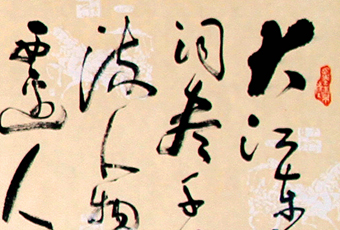 大江东
淘尽千
流人物
西边人